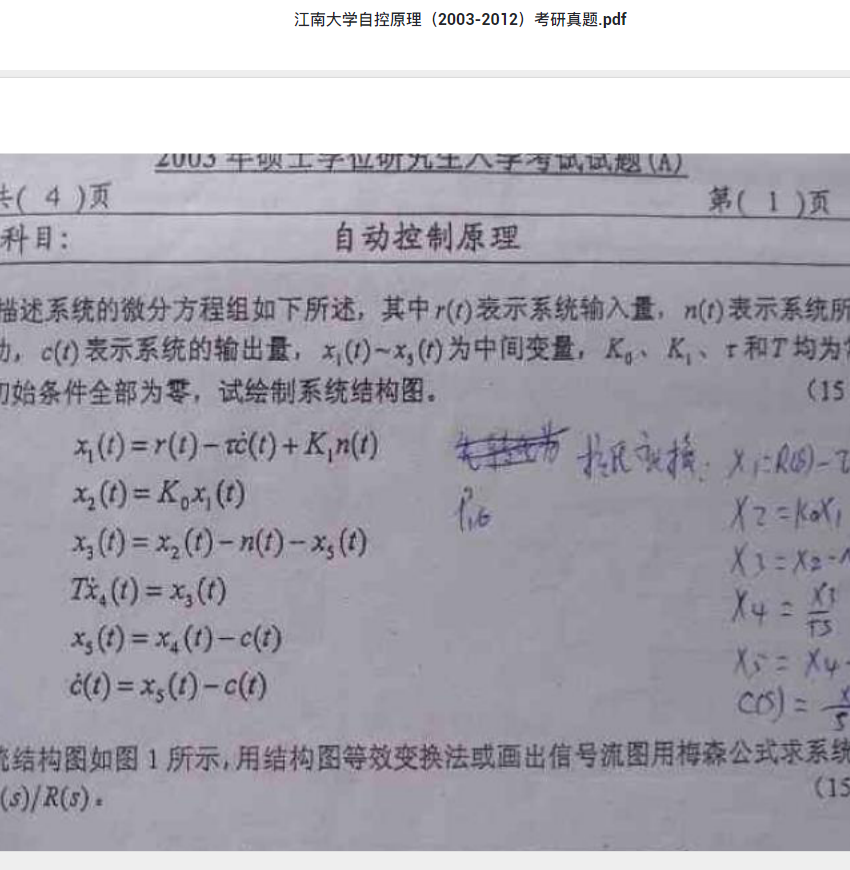 江南大学自控原理（2003-2012）考研真题.pdf
2003 年硕士学位研究生入学考试试题(A)
共( 4 )页 第( 1 )页
科目: 自动控制原理
描述系统的微分方程组如下所述，其中r(t)表示系统输入量，n(t)表示系统所
动，c(t)表示系统的输出量，x₁(t)~x₅(t)为中间变量，K₀、K₁、τ和T均为常
初始条件全部为零，试绘制系统结构图。 (15
x₁(t)=r(t)-τċ(t)+K₁n(t)
x₂(t)=K₀x₁(t)
x₃(t)=x₂(t)-n(t)-x₅(t)
Tẋ₄(t)=x₃(t)
x₅(t)=x₄(t)-c(t)
ċ(t)=x₅(t)-c(t)
拉氏变换: X₁=R(S)-τ
X2=K₀X₁
X3=X2-N
X4=X3/TS
X5=X4-
C(S)=
统结构图如图1所示,用结构图等效变换法或画出信号流图用梅森公式求系统
(s)/R(s)。 (15